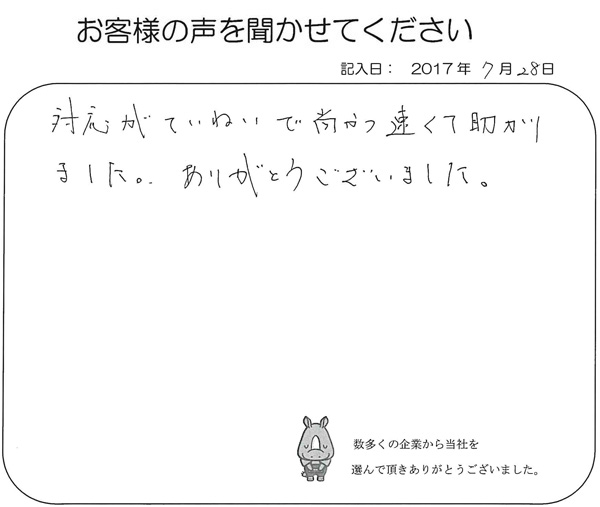 お客様の声を聞かせてください
記入日： 2017年 7月 28日
対応がていねいで尚かつ速くて助かり
ました。ありがとうございました。
数多くの企業から当社を
選んで頂きありがとうございました。